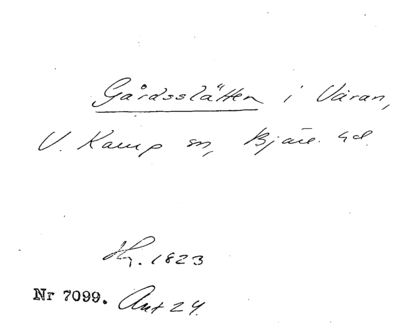 Gårdsslätten i Väran,
V. Karup sn, Bjäre hd.
Hy. 1823
Nr 7099. Akt 24.